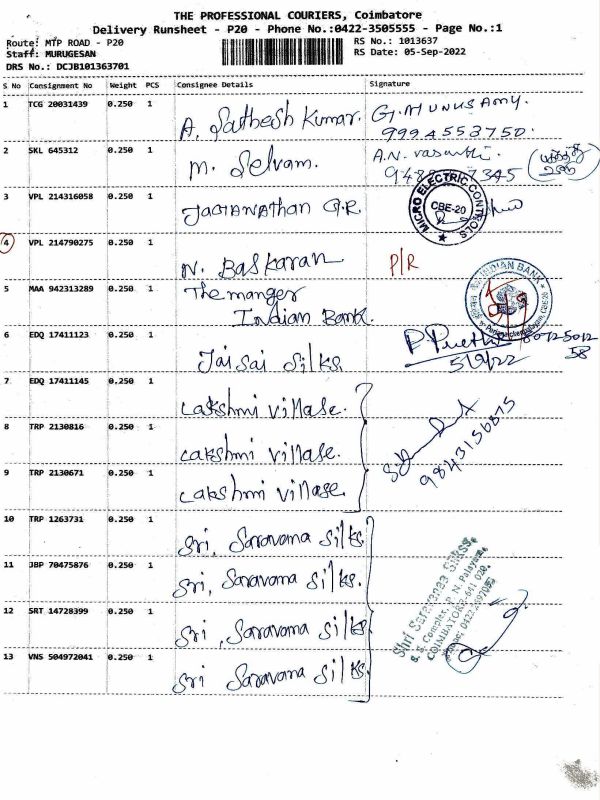 THE PROFESSIONAL COURIERS, Coimbatore
Delivery Runsheet - P20 - Phone No.:0422-3505555 - Page No.:1
Route: MTP ROAD - P20
RS No.: 1013637
Staff: MURUGESAN
RS Date: 05-Sep-2022
DRS No.: DCJB101363701
S No Consignment No Weight PCS Consignee Details Signature
1 TCG 20031439 0.250 1 A. Sathesh Kumar. G. MUNUSAMY.
9994553750.
2 SKL 645312 0.250 1 M. Selvam. A.N. Vasanthi.
3 VPL 214316058 0.250 1 Jaganathan G.R. MICRO ELECTRIC CONTROLS
CBE-20
4 VPL 214790275 0.250 1 N. Baskaran P/R
5 MAA 942313289 0.250 1 The manger
Indian Bank. INDIAN BANK
6 EDQ 17411123 0.250 1 Jai Sai Silks. P. Preethi 80725012
5/9/22 58
7 EDQ 17411145 0.250 1 Lakshmi Villase.
8 TRP 2130816 0.250 1 Lakshmi Villase.
9 TRP 2130671 0.250 1 Lakshmi Villase. 9843156875
10 TRP 1263731 0.250 1 Sri, Saravana Silks.
11 JBP 70475876 0.250 1 Sri, Saravana Silks.
12 SRT 14728399 0.250 1 Sri, Saravana Silks.
13 VNS 504972041 0.250 1 Sri Saravana Silks.
Shri Saravanaa Silkss,
S. S. Complex, P. N. Palayam,
COIMBATORE-641 020.